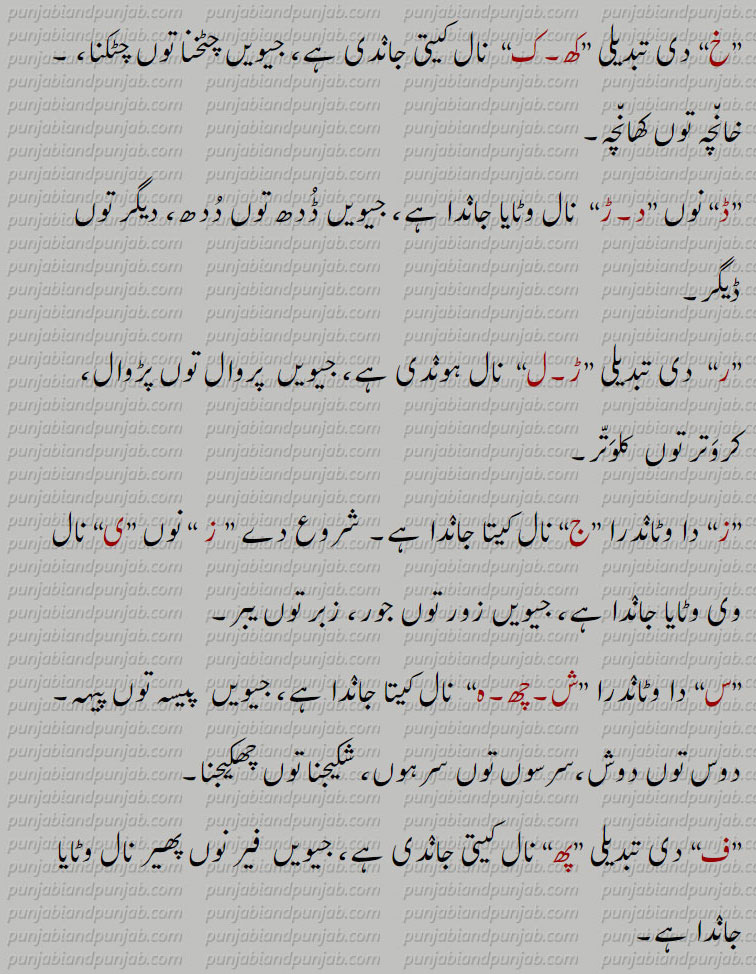 ”خ“ دی تبدیلی ”کھ۔ک“ نال کیتی جان٘دی ہے، جیویں چٹخنا توں چٹکنا، ۔
خانّچہ توں کھانّچہ۔
”ڈ“ نوں ”د۔ڑ“ نال وٹایا جان٘دا ہے، جیویں ڈُدھ توں دُدھ، دیگر توں
ڈیگر۔
”ر“ دی تبدیلی ”ڑ۔ل“ نال ہون٘دی ہے، جیویں پروال توں پڑوال،
کروَتر توں کلوَتّر۔
”ز“ دا وٹان٘درا ”ج“ نال کیتا جان٘دا ہے۔ شروع دے ”ز“ نوں ”ی“ نال
وی وٹایا جان٘دا ہے، جیویں زور توں جور، زبر توں یبر۔
”س“ دا وٹان٘درا ”ش۔چھ۔ہ“ نال کیتا جان٘دا ہے، جیویں پیسہ توں پیہہ۔
دوس توں دوش،سرسوں توں سرہوں، شکیجنا توں چھکیجنا۔
”ف“ دی تبدیلی ”پھ“ نال کیتی جان٘دی ہے، جیویں فیر نوں پھیر نال وٹایا
جان٘دا ہے۔